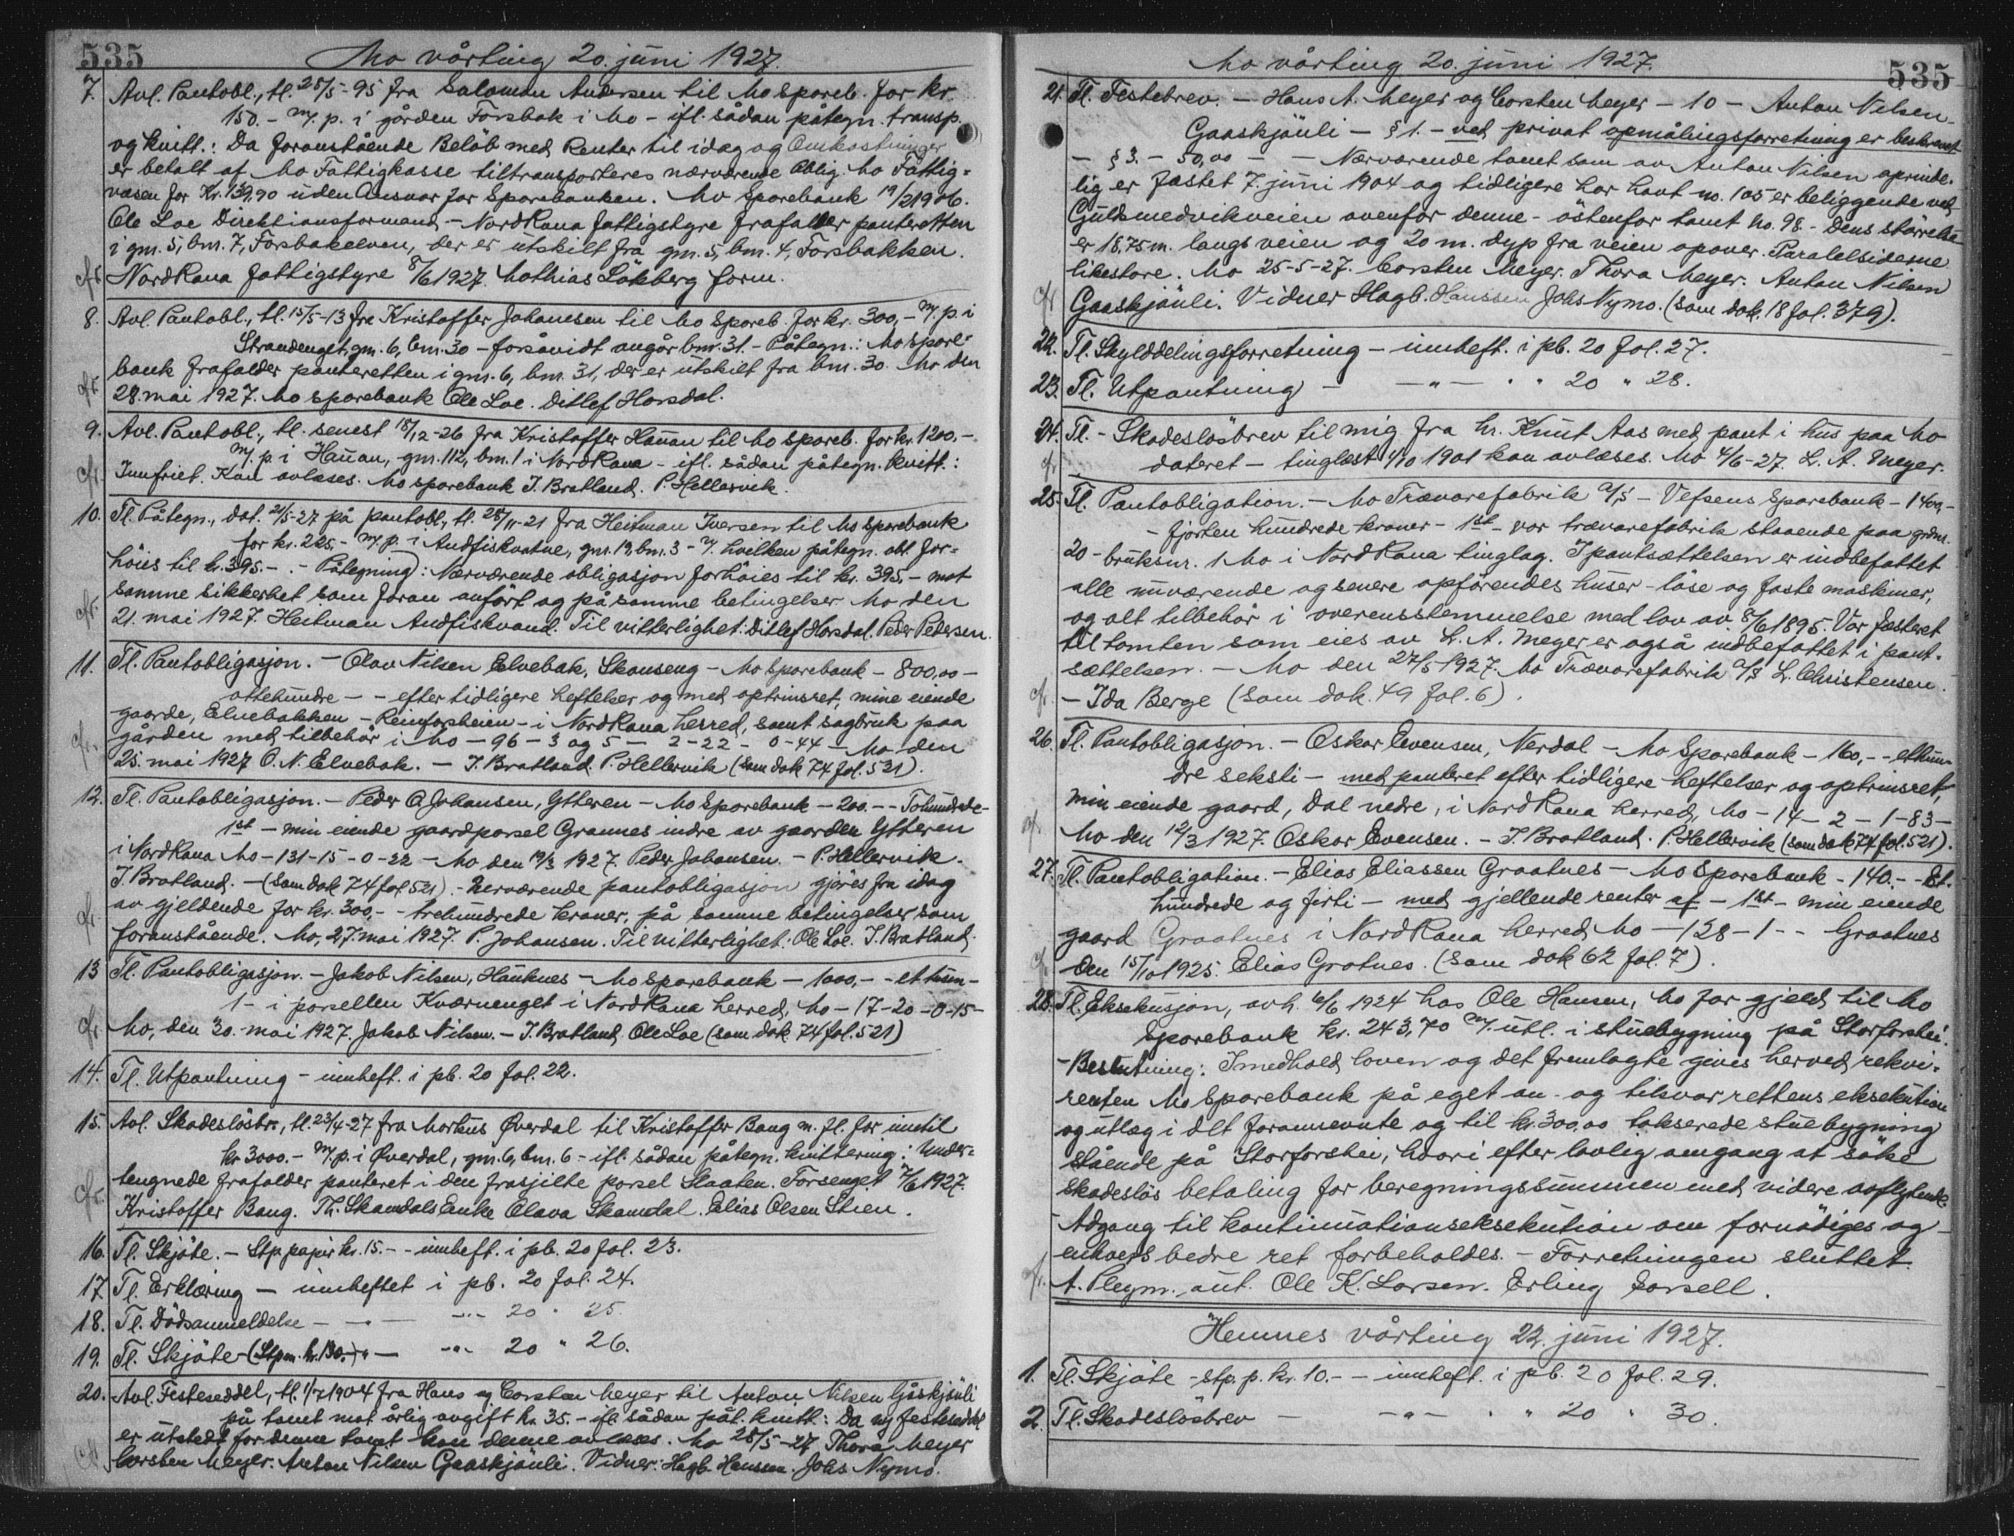 535
Mo vårting 20. juni 1927.
7. Avl. Pantobl., tl. 28/5-95 fra Salomon Andersen til Mo Spareb. for kr.
150.- m/ p. i gården Forsbak i Mo - ifl. sådan påtegn. transp.
og kvitt.: Da foranstående Belöb med Renter til idag og Omkostninger
er betalt af Mo Fattigkasse tiltransporteres nærværende Oblig. Mo Fattig-
væsen for Kr. 139,90 uden Ansvar for Sparebanken. Mo Sparebank 19/2 1906.
Ole Loe Direktionsformand - NordRana fattigstyre frafalder panteretten
i gnr. 5, bnr. 7, Forsbakelven, der er utskilt fra gnr. 5, bnr. 4, Forsbakken.
cfr. NordRana fattigstyre 8/6 1927. Mathias Lökberg form.
8. Avl. Pantobl., tl. 15/5-13 fra Kristoffer Johansen til Mo Spareb. for kr. 300,- m/ p. i
Strandenget, gnr. 6, bnr. 30 - forsåvidt angår bnr. 31. - Påtegn.: Mo Spare-
bank frafalder panteretten i gnr. 6, bnr. 31, der er utskilt fra bnr. 30. Mo den
cfr. 28. mai 1927. Mo Sparebank Ole Loe. Ditlef Horsdal.
9. Avl. Pantobl., tl. senest 18/12-26 fra Kristoffer Hauan til Mo Spareb. for kr. 1200,-
m/ p. i Hauan, gnr. 112, bnr. 1 i NordRana - ifl. sådan påtegn. kvitt.:
cfr. Innfriet. Kan avlæses. Mo Sparebank J. Bratland. P. Hellervik.
10. Tl. Påtegn., dat. 21/5-27 på pantobl., tl. 28/11-21 fra Heitman Iversen til Mo Sparebank
for kr. 225,- m/ p. i Andfiskvatne, gnr. 19, bnr. 3 - v/ hvilken påtegn. obl. for-
höies til kr. 395.- . - Påtegning: Nærværende obligasjon forhöies til kr. 395.- mot
samme sikkerhet som foran anfört og på samme betingelser Mo den
cfr. 21. mai 1927. Heitman Andfiskvand. Til vitterlighet: Ditlef Horsdal. Peder Pedersen.
11. Tl. Pantobligasjon. - Olav Nilsen Elvebak, Skonseng - Mo Sparebank - 800,00 -
ottehundre - - efter tidligere heftelser og med optrinsret, mine eiende
gaarde, Elvebakken - Reinforsheien - i NordRana herred, samt sagbruk paa
cfr. gården med tilbehör i Mo - 96 - 3 og 5 - 2-22 - 0-44 - Mo den
25. mai 1927 O. N. Elvebak. - J. Bratland P. Hellervik (som dok 74 fol. 521).
12. Tl. Pantobligasjon. - Peder A Johansen, Ytteren - Mo Sparebank - 200. - - Tohundrede -
1st - min eiende gaardparsel Grannes indre av gaarden Ytteren
i NordRana Mo - 131-15-0-22 - Mo den 19/3 1927. Peder Johansen. - P. Hellervik.
J. Bratland. - (som dok 74 fol 521). - Nærværende pantobligasjon gjöres fra idag
cfr. av gjeldende for kr. 300,- - trehundrede kroner, på samme betingelser som
foranstående. Mo, 27. mai 1927. P. Johansen. Til vitterlighet: Ole Loe. J. Bratland.
13 Tl. Pantobligasjon. - Jakob Nilsen, Hauknes - Mo Sparebank - 1000,- - et tusen -
1 - i parsellen Kværnenget i NordRana herred, Mo - 17-20-0-15 -
cfr. Mo, den 30. mai 1927. Jakob Nilsen. - J. Bratland. Ole Loe (som dok 74 fol. 521)
14. Tl. Utpantning - innheft. i pb. 20 fol. 22.
15. Avl. Skadeslösbr., tl. 23/4-27 fra Mortens Överdal til Kristoffer Bang m. fl. for inntil
kr 3000.- m/ p. i Överdal, gnr. 6, bnr. 6 - ifl. sådan påtegn. kvittering: Under-
cfr. tegnede frafalder panteret i den fraskjilte parsel Slaaten. Forsenget 7/6 1927.
Kristoffer Bang. Th. Skamdals Enke Olava Skamdal. Elias Olsen Stien.
16. Tl. Skjöte. - Stp. papir kr. 15.- - innheft. i pb. 20 fol. 23.
17. Tl. Erklæring - innheftet i pb. 20 fol. 24.
18. Tl. Dödsanmeldelse - - " - - " - 20 " 25.
19. Tl. Skjöte - (Stpm. kr. 130.-) " - - " - 20 " 26.
20. Avl. Festeseddel, tl. 1/7 1904 fra Hans og Corsten Meyer til Anton Nilsen Gåskjönli
på tomt mot årlig avgift kr. 35.- ifl. sådan påt. kvitt: Da ny festeseddel
er utstedt for denne tomt kan denne avlæses. Mo 28/5-27 Thora Meyer
cfr. Corsten Meyer. Anton Nilsen Gaaskjönli. Vidner: Hagb. Hanssen. Johs Nymo.
Mo vårting 20. juni 1927.
535
21. Tl. Festebrev. - Hans A. Meyer og Corsten Meyer - 10 - Anton Nilsen
Gaaskjönli - § 1. - ved privat opmålingsforretning er bestemt
- § 3. - 50,00 - - Nærværende tomt som av Anton Nilsen oprinde-
lig er fæstet 7. juni 1904 og tidligere har havt no. 105 er beliggende ved
Guldsmedvikveien ovenfor denne - östenfor tomt no. 98. - Dens störrelse
er 18,75 m. langs veien og 20 m. dyp fra veien opover. Paralelsiderne
likestore. Mo 25-5-27. Corsten Meyer. Thora Meyer. Anton Nilsen
cfr Gaaskjönli. Vidner Hagb. Hanssen Johs Nymo. (som dok. 18 fol. 379).
22. Tl. Skylddelingsforretning - innheft. i pb. 20 fol. 27.
23. Tl. Utpantning - - " - " " 20 " 28.
24. Tl. - Skadeslösbrev til mig fra hr. Knut Aas med pant i hus paa Mo
cfr. dateret - tinglæst 1/10 1901 kan avlæses. Mo 4/6-27. L. A. Meyer.
25. Tl. Pantobligation. - Mo Trævarefabrik A/S - Vefsens Sparebank - 1400,-
- fjorten hundrede kroner - 1st - vor trævarefabrik staaende paa grdnr.
20 - bruksnr. 1 Mo i NordRana tinglag. I pantsættelsen er indbefattet
alle nuværende og senere opförendes huser - löse og faste maskiner,
og alt tilbehör i overensstemmelse med lov av 8/6 1895. Vor fæsteret
til tomten som eies av L. A. Meyer er også indbefattet i pant-
sættelsen. - Mo den 27/5 1927. Mo Trævarefabrik A/S L. Christensen.
cfr. - Ida Berge (som dok. 49 fol. 6).
26. Tl. Pantobligasjon. - Oskar Evensen, Nerdal - Mo Sparebank - 160,- - ethun-
dre seksti - med panteret efter tidligere heftelser og optrinsret,
cfr. min eiende gaard, Dal nedre, i NordRana herred, Mo - 14 - 2 - 1-83 -
Mo den 12/3 1927. Oskar Evensen. - J. Bratland. P. Hellervik (som dok 74 fol. 521).
27. Tl. Pantobligation. - Elias Eliassen Graatnes - Mo Sparebank - 140.- - Et-
hundrede og firti - med gjellende renter af - 1st - min eiende
gaard Graatnes i NordRana herred Mo - 128 - 1 - - Graatnes
cfr. den 15/10 1925. Elias Grotnes. (som dok 62 fol. 7).
28. Tl. Eksekusjon, avh. 12/6 1924 hos Ole Hansen, Mo for gjeld til Mo
Sparebank kr. 243,70 m/ utl. i stuebygning på Storforshei.
- Beslutning: I medhold loven og det fremlagte gives herved rekvi-
renten Mo Sparebank på eget an- og tilsvar rettens eksekution
og utlæg i det forannevnte og til kr. 300,00 takserede stuebygning
stående på Storforshei, hvori efter lovlig omgang at söke
skadeslös betaling for beregningssummen med videre avflytende.
Adgang til kontinuationseksekution om fornödiges og
enhvers bedre ret forbeholdes. - Forretningen sluttet.
cfr. A. Pleym. aut. Ole K. Larsen. Erling Corsell.
Hemnes vårting 22. juni 1927.
1. Tl. Skjöte - stp. p. kr. 10.- - innheft. i pb. 20 fol. 29.
2. Tl. Skadeslösbrev - - " - " " 20 " 30.